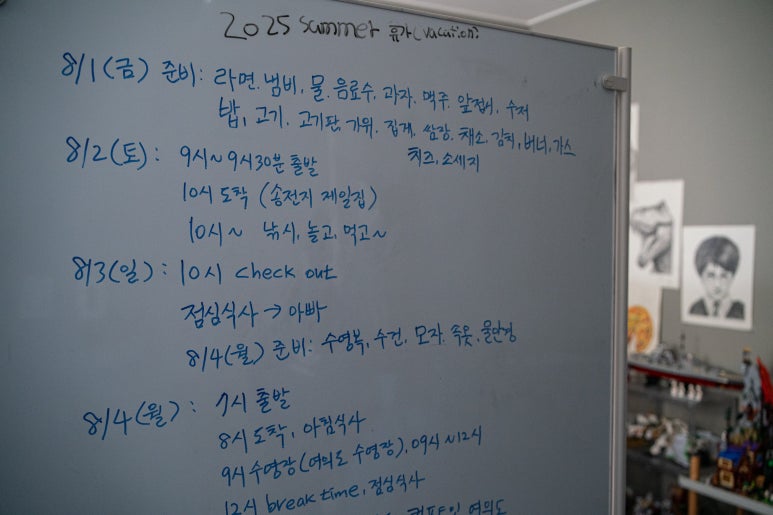 2025 summer 휴가(vacation)
8/1(금) 준비: 라면, 냄비, 물, 음료수, 과자, 맥주, 앞접시, 수저
밥, 고기, 고기판, 가위, 집게, 쌈장, 채소, 김치, 버너, 가스
치즈, 소세지
8/2(토): 9시~9시30분 출발
10시 도착 (송전지 제일집)
10시~ 낚시, 놀고, 먹고~
8/3(일): 10시 check out
점심식사 → 아빠
8/4(월) 준비: 수영복, 수건, 모자, 속옷, 물안경
8/4(월): 7시 출발
8시 도착, 아침식사
9시 수영장(여의도 수영장), 09시~12시
12시 break time, 점심식사
여의도